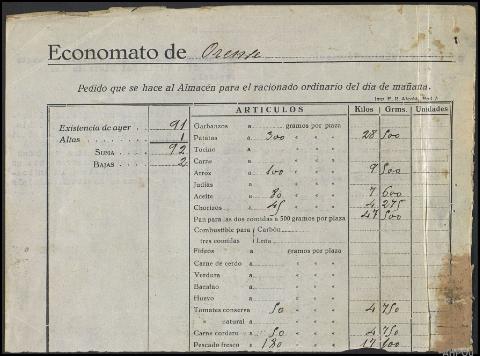 Economato de Orense
Pedido que se hace al Almacén para el racionado ordinario del día de mañana.
ARTICULOS Kilos Grms. Unidades
Existencia de ayer 91
Altas 1
SUMA 92
BAJAS 2
Garbanzos a gramos por plaza
Patatas a 300 » » » 28 500
Tocino a » » »
Carne a » » »
Arroz a 100 » » » 9 500
Judías a » » »
Aceite a 80 » » » 7 600
Chorizos a 45 » » » 4 275
Pan para las dos comidas a 500 gramos por plaza 47 500
Combustible para tres comidas Carbón
Leña
Fideos a gramos por plaza
Carne de cerdo a » » »
Verdura a » » »
Bacalao a » » »
Huevo a » » »
Tomates conserva 50 » » » 4 750
» natural a » » »
Carne cordero a 50 » » » 4 750
Pescado fresco a » » » 17 600
AHPOU